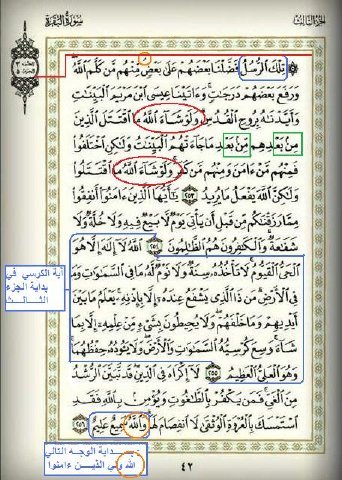 الجزء الثالث
سورة البقرة
۞ تِلْكَ الرُّسُلُ فَضَّلْنَا بَعْضَهُمْ عَلَىٰ بَعْضٍ ۘ مِّنْهُم مَّن كَلَّمَ اللَّهُ ۖ
وَرَفَعَ بَعْضَهُمْ دَرَجَاتٍ ۚ وَءَاتَيْنَا عِيسَى ابْنَ مَرْيَمَ الْبَيِّنَاتِ
وَأَيَّدْنَاهُ بِرُوحِ الْقُدُسِ ۗ وَلَوْ شَاءَ اللَّهُ مَا اقْتَتَلَ الَّذِينَ
مِن بَعْدِهِم مِّن بَعْدِ مَا جَاءَتْهُمُ الْبَيِّنَاتُ وَلَٰكِنِ اخْتَلَفُوا
فَمِنْهُم مَّنْ ءَامَنَ وَمِنْهُم مَّن كَفَرَ ۚ وَلَوْ شَاءَ اللَّهُ مَا اقْتَتَلُوا
وَلَٰكِنَّ اللَّهَ يَفْعَلُ مَا يُرِيدُ ٢٥٣ يَا أَيُّهَا الَّذِينَ ءَامَنُوا أَنفِقُوا
مِمَّا رَزَقْنَاكُم مِّن قَبْلِ أَن يَأْتِيَ يَوْمٌ لَّا بَيْعٌ فِيهِ وَلَا خُلَّةٌ وَلَا
شَفَاعَةٌ ۗ وَالْكَافِرُونَ هُمُ الظَّالِمُونَ ٢٥٤ اللَّهُ لَا إِلَٰهَ إِلَّا هُوَ
الْحَيُّ الْقَيُّومُ ۚ لَا تَأْخُذُهُ سِنَةٌ وَلَا نَوْمٌ ۚ لَّهُ مَا فِي السَّمَاوَاتِ وَمَا
فِي الْأَرْضِ ۗ مَن ذَا الَّذِي يَشْفَعُ عِندَهُ إِلَّا بِإِذْنِهِ ۚ يَعْلَمُ مَا بَيْنَ
أَيْدِيهِمْ وَمَا خَلْفَهُمْ ۖ وَلَا يُحِيطُونَ بِشَيْءٍ مِّنْ عِلْمِهِ إِلَّا بِمَا
شَاءَ ۚ وَسِعَ كُرْسِيُّهُ السَّمَاوَاتِ وَالْأَرْضَ ۖ وَلَا يَئُودُهُ حِفْظُهُمَا ۚ
وَهُوَ الْعَلِيُّ الْعَظِيمُ ٢٥٥ لَا إِكْرَاهَ فِي الدِّينِ ۖ قَد تَّبَيَّنَ الرُّشْدُ
مِنَ الْغَيِّ ۚ فَمَن يَكْفُرْ بِالطَّاغُوتِ وَيُؤْمِن بِاللَّهِ فَقَدِ
اسْتَمْسَكَ بِالْعُرْوَةِ الْوُثْقَىٰ لَا انفِصَامَ لَهَا ۗ وَاللَّهُ سَمِيعٌ عَلِيمٌ ٢٥٦
آية الكرسي في
بداية الجزء
الثالث
بداية الوجه التالي
الله ولي الذين ءامنوا
٤٢